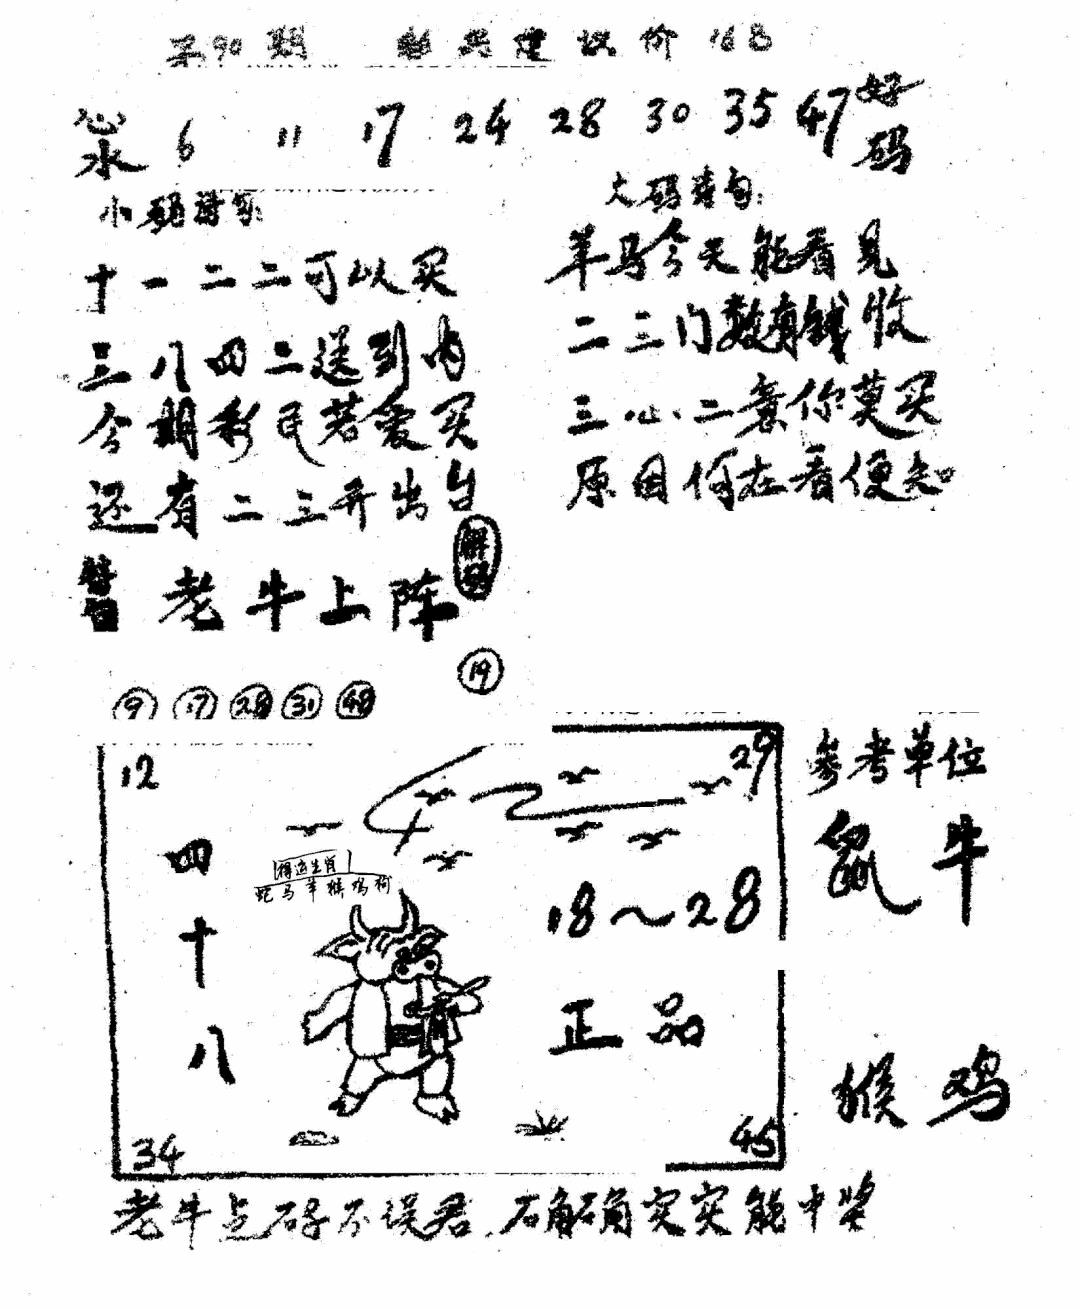 第90期 彩民建议价168
心水 6 11 17 24 28 30 35 47 好码
小码诗句:
十一二二可以买
三八四二送到内
今期彩民若爱买
还有二三开出台
大码诗句:
羊马今天能看见
二三门数有钱收
三心二意你莫买
原因何在看便知
老牛上阵
解码
19
9 17 28 31 48
12
29
四十八
得逃生肖
蛇马羊猴鸡狗
18～28
正品
34
45
参考单位
鼠牛
猴鸡
老牛点码不误君,的确实实能中奖